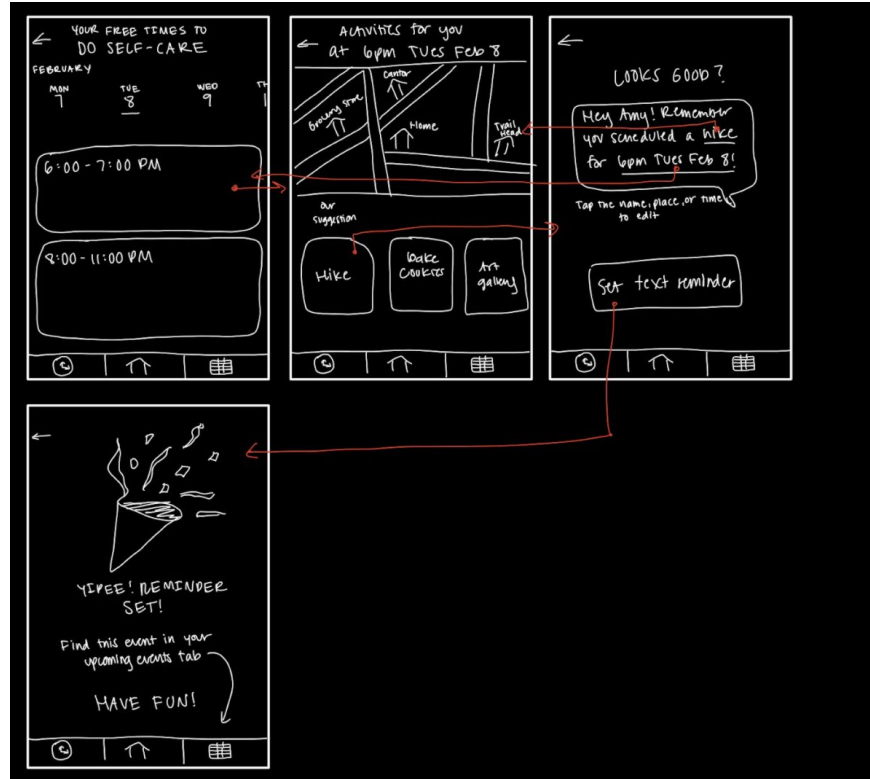 YOUR FREE TIMES TO
DO SELF-CARE
FEBRUARY
MON
7
TUE
8
WED
9
TH
1
6:00 - 7:00 PM
8:00 - 11:00 PM
Activities for you
at 6pm Tues Feb 8
Cantor
Grocery Store
Home
Trail
Head
our
suggestion
Hike
bake
cookies
Art
gallery
LOOKS GOOD?
Hey Amy! Remember
you scheduled a hike
for 6pm Tues Feb 8!
Tap the name, place, or time
to edit
Set text reminder
YIPEE! REMINDER
SET!
Find this event in your
upcoming events tab
HAVE FUN!